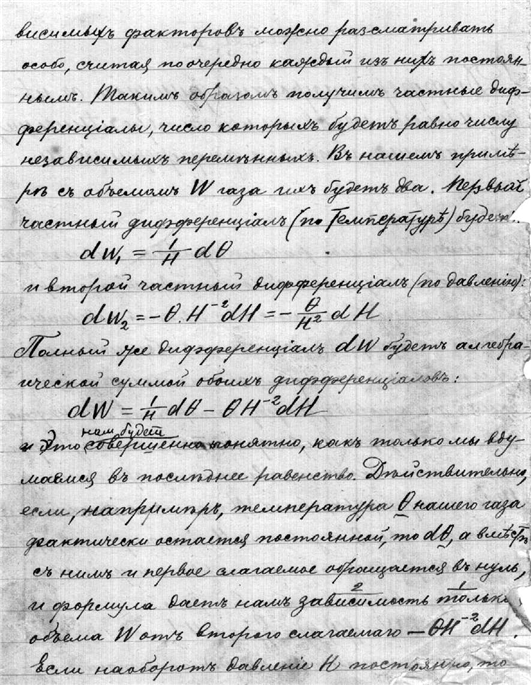 висимыхъ факторовъ можно разсматривать
особо, считая поочередно каждый изъ нихъ постоян-
нымъ. Такимъ образомъ получимъ частные диф-
ференціалы, число которыхъ будетъ равно числу
независимыхъ перемѣнныхъ. Въ нашемъ примѣ-
рѣ съ объемомъ W газа ихъ будетъ два. Первый
частный дифференціалъ (по температурѣ) будет..
dW₁ = 1/H dθ
и второй частный дифференціалъ (по давленію):
dW₂ = -θ.H⁻²dH = -θ/H² dH
Полный же дифференціалъ dW будетъ алгебра-
ической суммой обоихъ дифференціаловъ:
dW = 1/H dθ - θH⁻²dH
намъ будетъ
и это совершенно понятно, какъ только мы вду-
маемся въ послѣднее равенство. Дѣйствительно,
если, напримѣръ, температура θ нашего газа
фактически остается постоянной, то dθ, а вмѣстѣ
съ нимъ и первое слагаемое обращается въ нуль,
2 1
и формула даетъ намъ зависимость только
объема W отъ второго слагаемаго -θH⁻²dH.
Если наоборотъ давленіе H постоянно, то